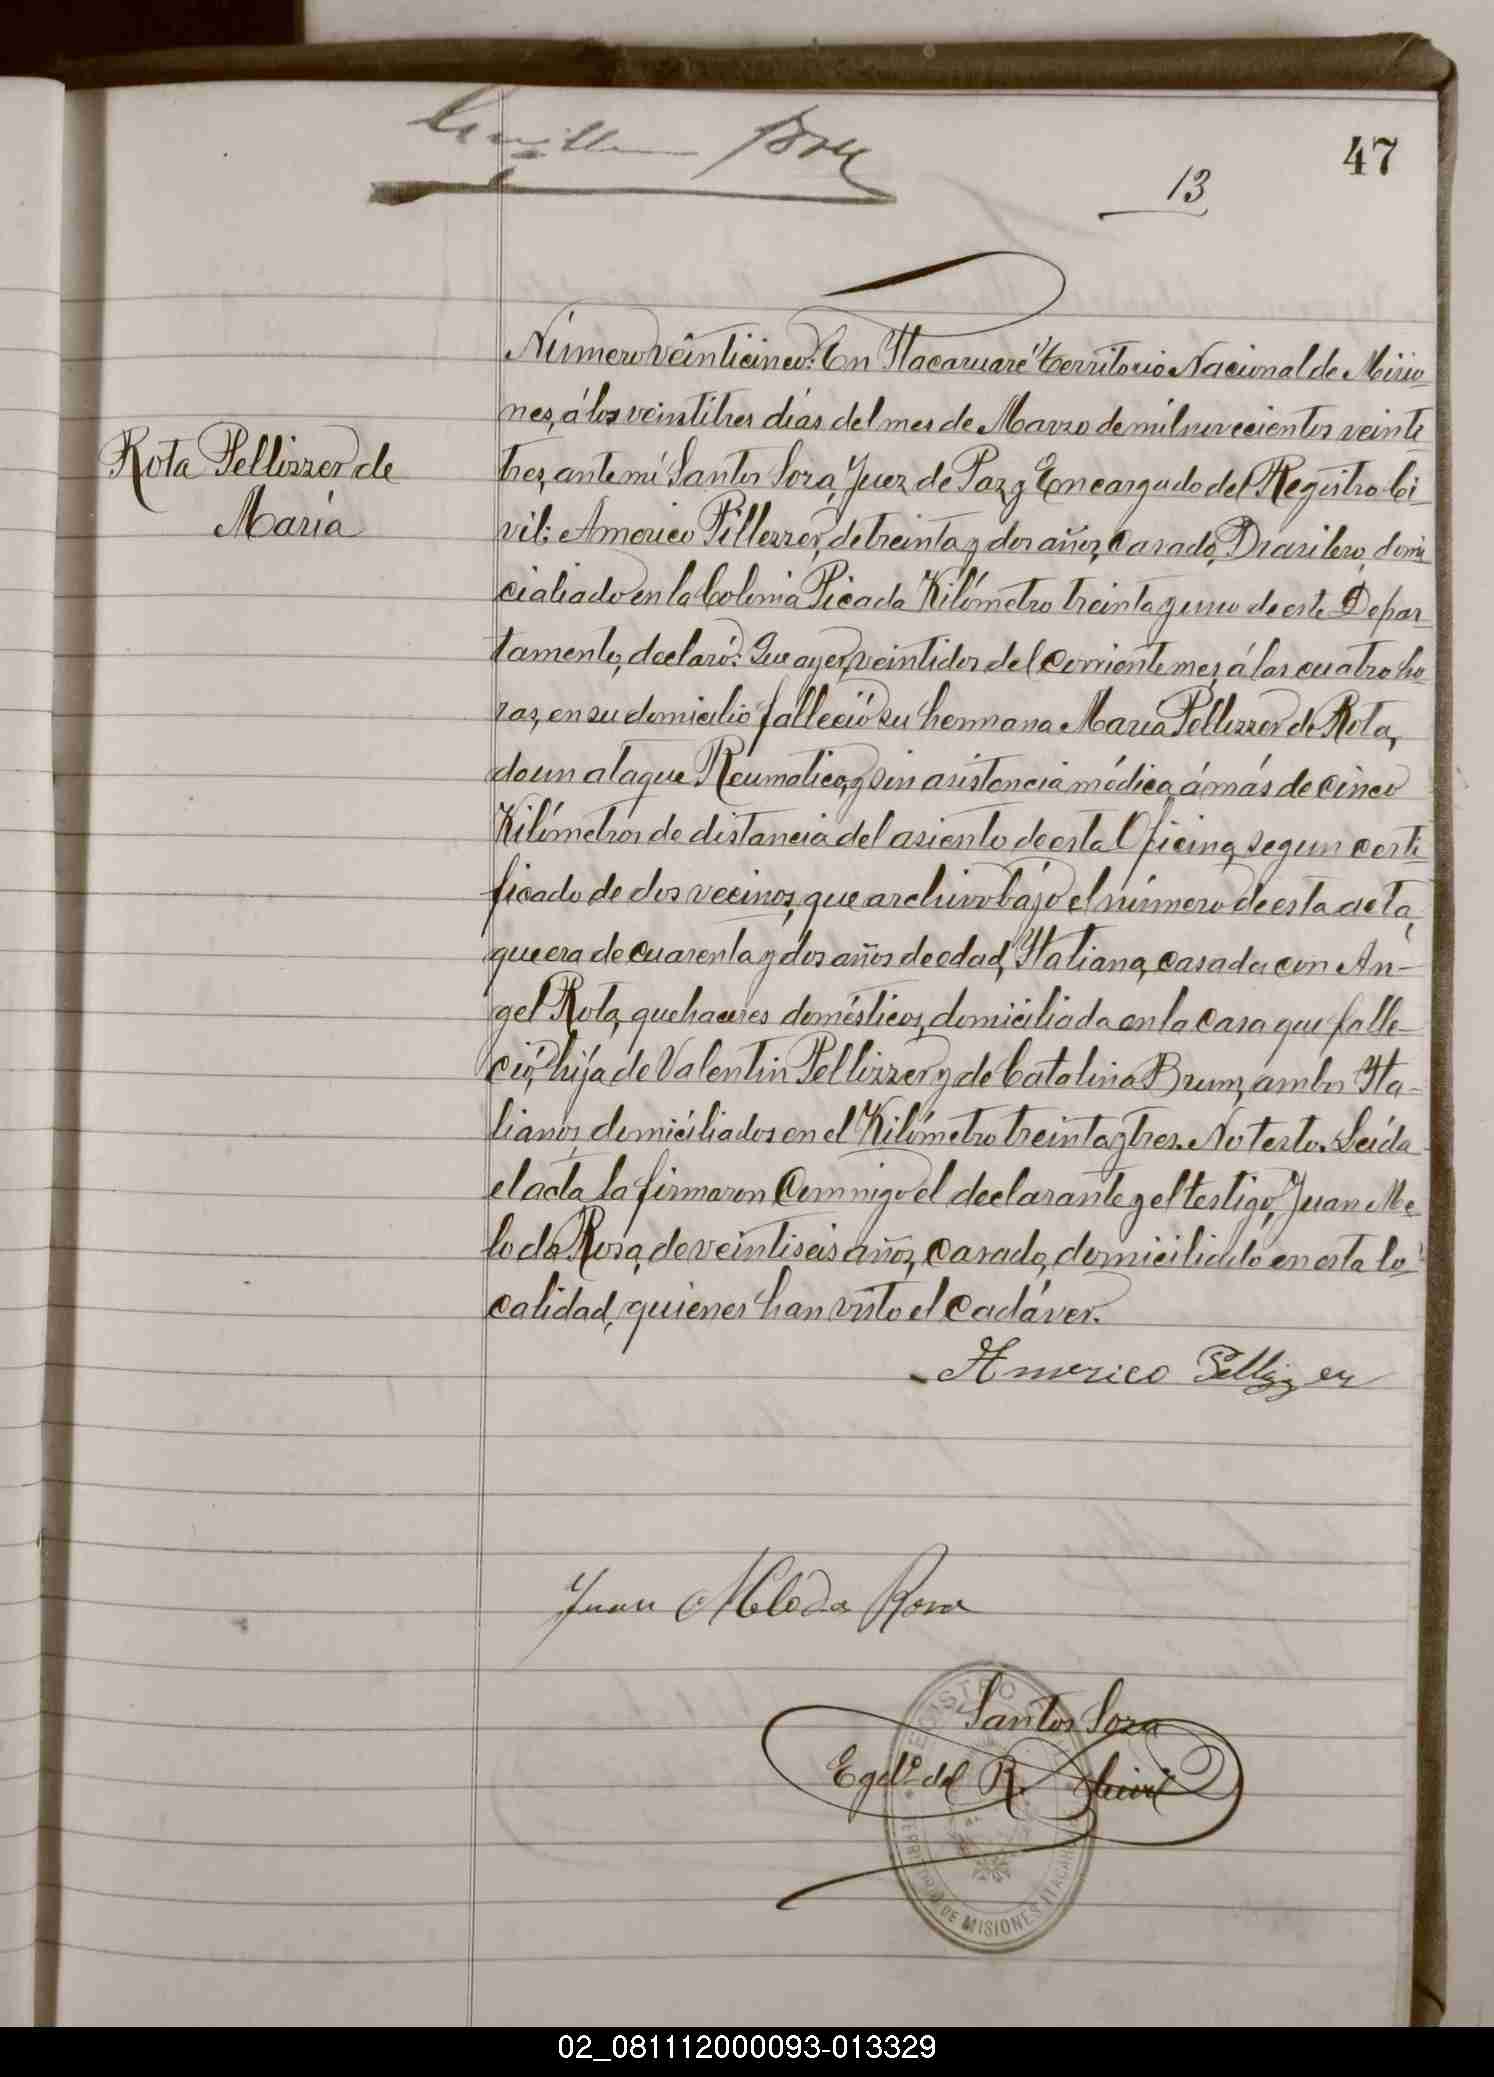 47
13
Rota Pellizzer de
María
Número veinticinco: En "Itacaruaré" Territorio Nacional de Misio-
nes, á los veintitres días del mes de Marzo de mil novecientos veinti
tres, ante mí Santos Soza, Juez de Paz y Encargado del Registro Ci-
vil: Americo Pillezzer, de treinta y dos años, casado, Brasilero, domi
cialiado en la Colonia Picada Kilómetro treinta y uno de este Depar-
tamento, declaró: Que ayer, veintidos del corriente mes, á las cuatro ho-
ras, en su domicilio falleció su hermana Maria Pellizzer de Rota,
de un ataque Reumatico, y sin asistencia médica, á más de cinco
Kilómetros de distancia del asiento de esta Oficina, segun certi-
ficado de dos vecinos, que archivo bájo el número de esta acta,
que era de cuarenta y dos años de edad, Italiana, casada con Án-
gel Rota, quehaceres domésticos, domiciliada en la casa que falle-
ció, hija de Valentin Pellizzer y de Catalina Brum, ambos Ita-
lianos, domiciliados en el Kilómetro treinta y tres. No testo. Leída
el acta, la firmaron Conmigo el declarante y el testigo, Juan Me-
lo da Rosa, de veintiseis años, casado, domiciliado en esta lo-
calidad, quienes han visto el cadáver.
Americo Pellizzer
Juan Melo da Rosa
Santos Soza
Egdo. del R. Civil
REGISTRO
TERRITORIO DE MISIONES ITACARUARE
02_081112000093-013329